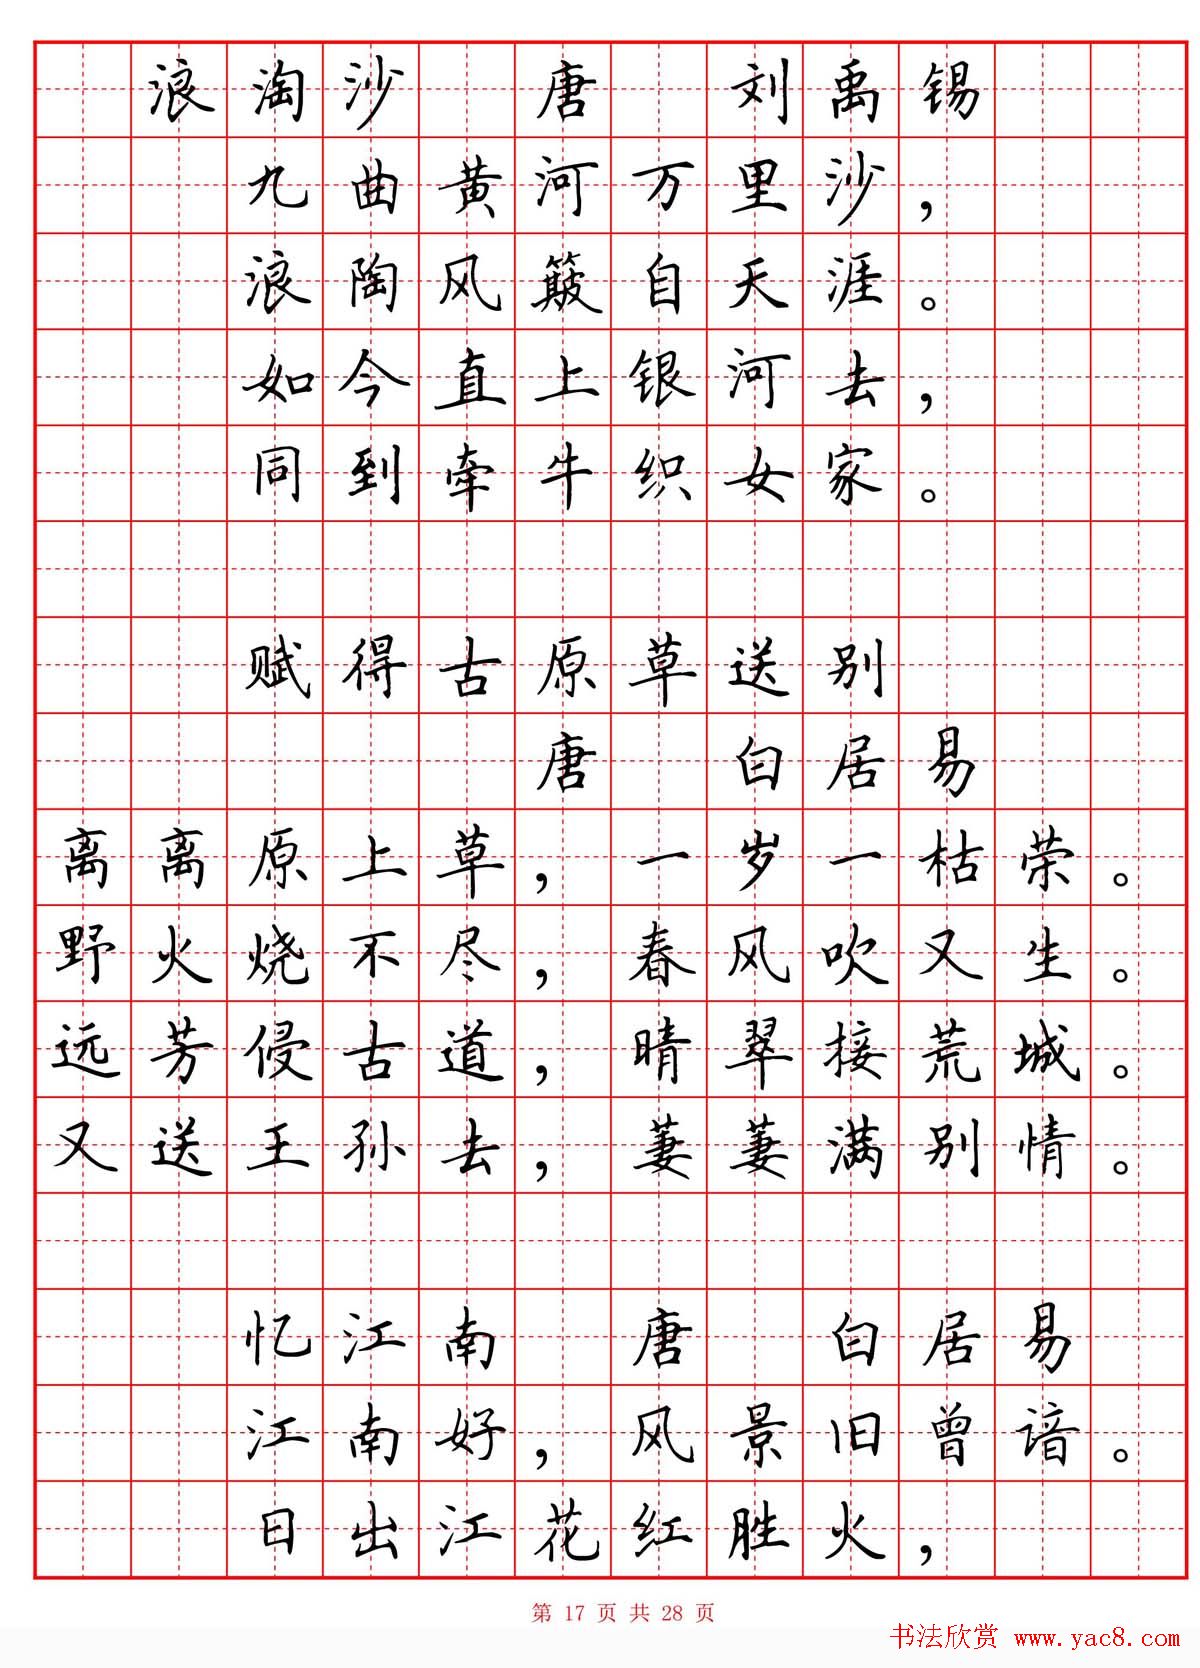 浪淘沙 唐 刘禹锡
九曲黄河万里沙，
浪陶风簸自天涯。
如今直上银河去，
同到牵牛织女家。
赋得古原草送别
唐 白居易
离离原上草，一岁一枯荣。
野火烧不尽，春风吹又生。
远芳侵古道，晴翠接荒城。
又送王孙去，萋萋满别情。
忆江南 唐 白居易
江南好，风景旧曾谙。
日出江花红胜火，
第 17 页 共 28 页
书法欣赏 www.yac8.com